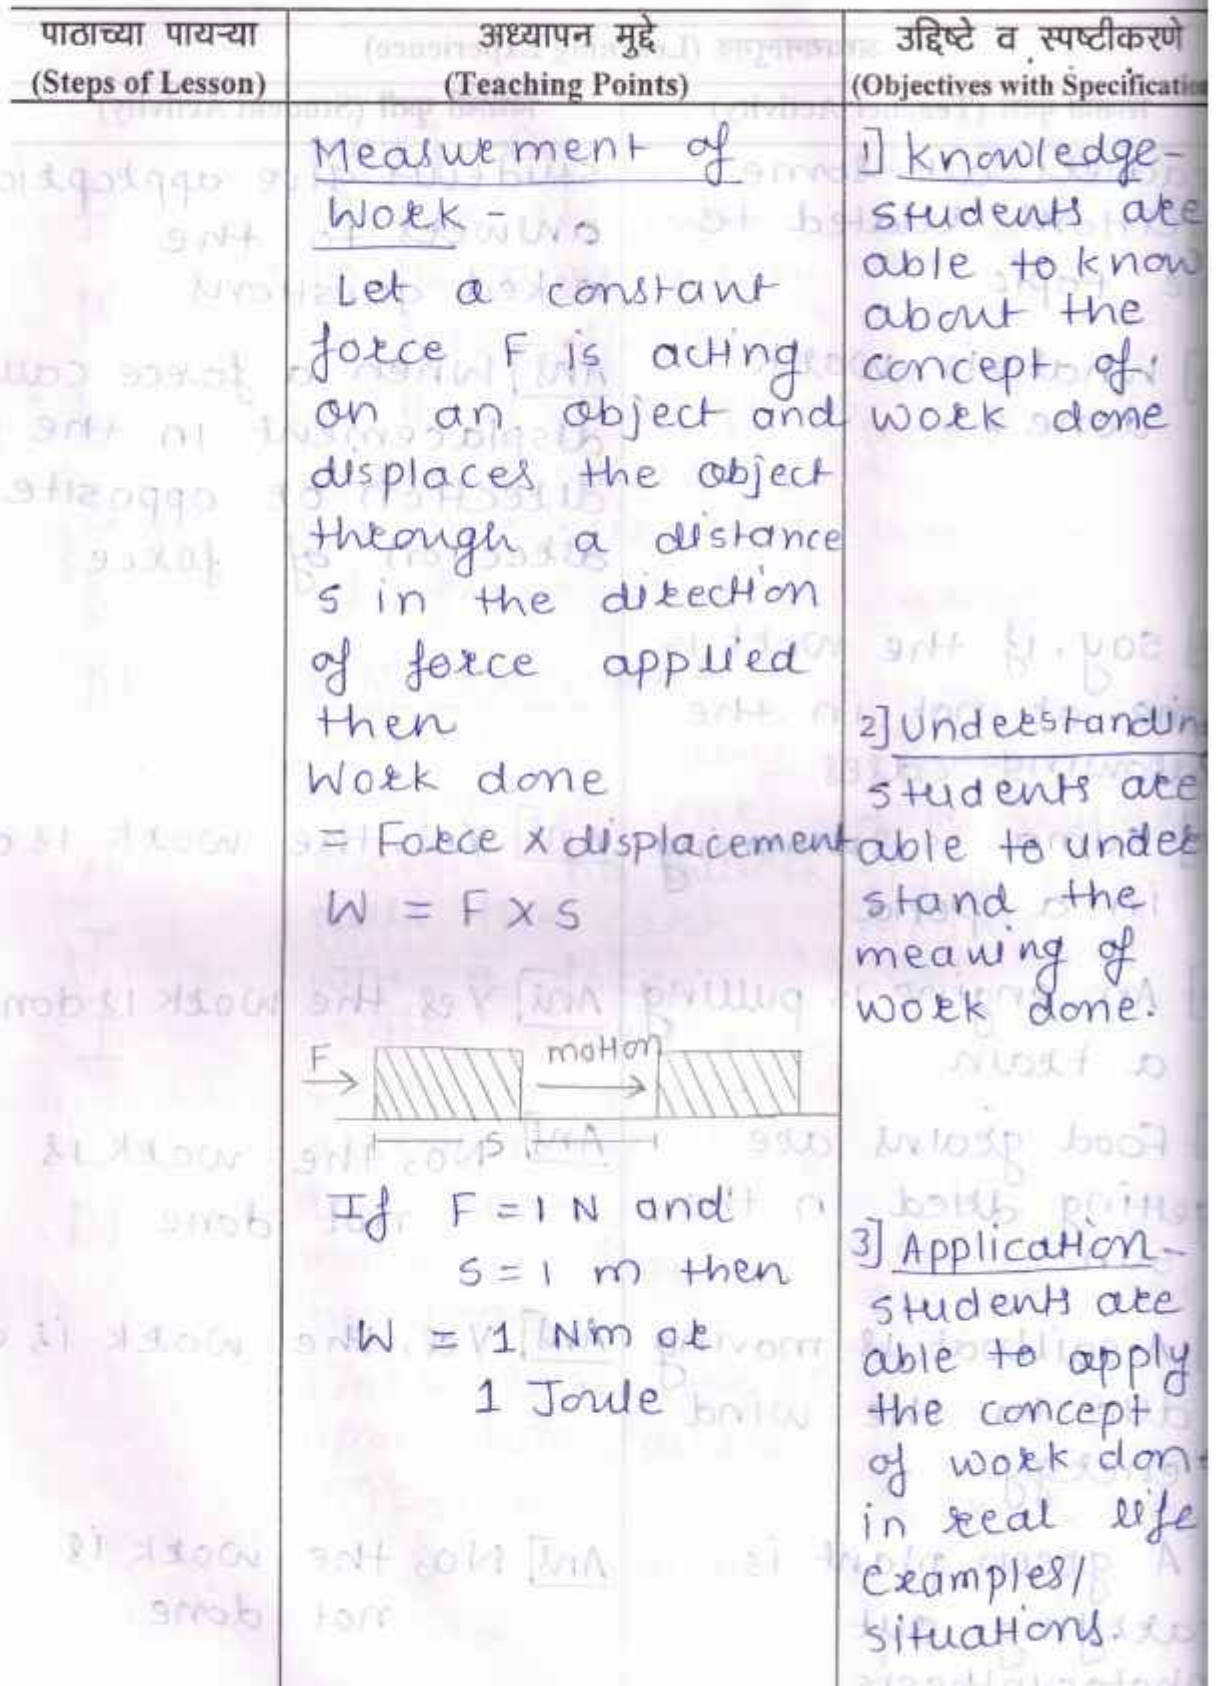 पाठाच्या पायऱ्या
(Steps of Lesson)
अध्यापन मुद्दे
(Teaching Points)
उद्दिष्टे व स्पष्टीकरणे
(Objectives with Specificatio
Measurement of
Work -
Let a constant
force F is acting
on an object and
displaces the object
through a distance
s in the direction
of force applied
then
Work done
= Force x displacement
W = F x s
F
motion
s
If F = 1 N and
s = 1 m then
W = 1 Nm or
1 Joule
1] Knowledge-
students are
able to know
about the
concept of
work done
2] Understandin
students are
able to under
stand the
meaning of
work done.
3] Application-
students are
able to apply
the concept
of work don
in real life
examples/
situations.